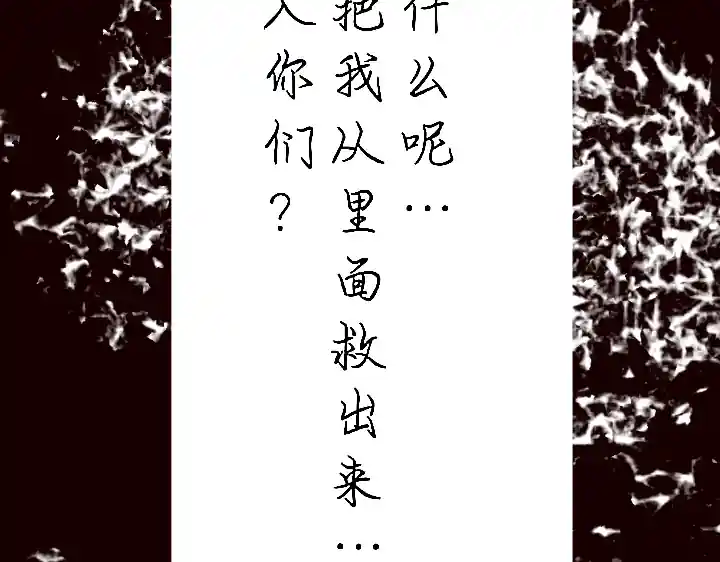 什么呢…
把我从里面救出来…
入你们？